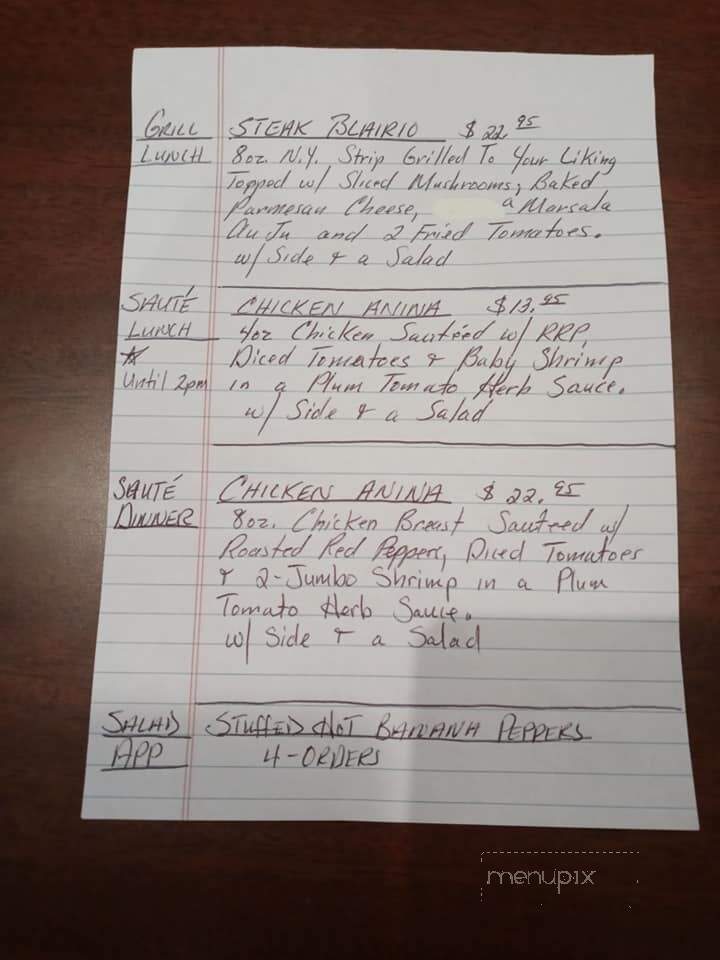 GRILL STEAK BLAIRIO $22.95
LUNCH 8oz. N.Y. Strip Grilled To Your Liking
Topped w/ Sliced Mushrooms, Baked
Parmesan Cheese, a Marsala
Au Ju and 2 Fried Tomatoes.
w/ Side & a Salad
SAUTÉ CHICKEN ANINA $13.95
LUNCH 4oz Chicken Sautéed w/ RRP,
☆ Diced Tomatoes & Baby Shrimp
Until 2pm in a Plum Tomato Herb Sauce.
w/ Side & a Salad
SAUTÉ CHICKEN ANINA $22.95
DINNER 8oz. Chicken Breast Sautéed w/
Roasted Red Peppers, Diced Tomatoes
& 2-Jumbo Shrimp in a Plum
Tomato Herb Sauce.
w/ Side & a Salad
SALAD STUFFED HOT BANANA PEPPERS
APP 4-ORDERS
menupix